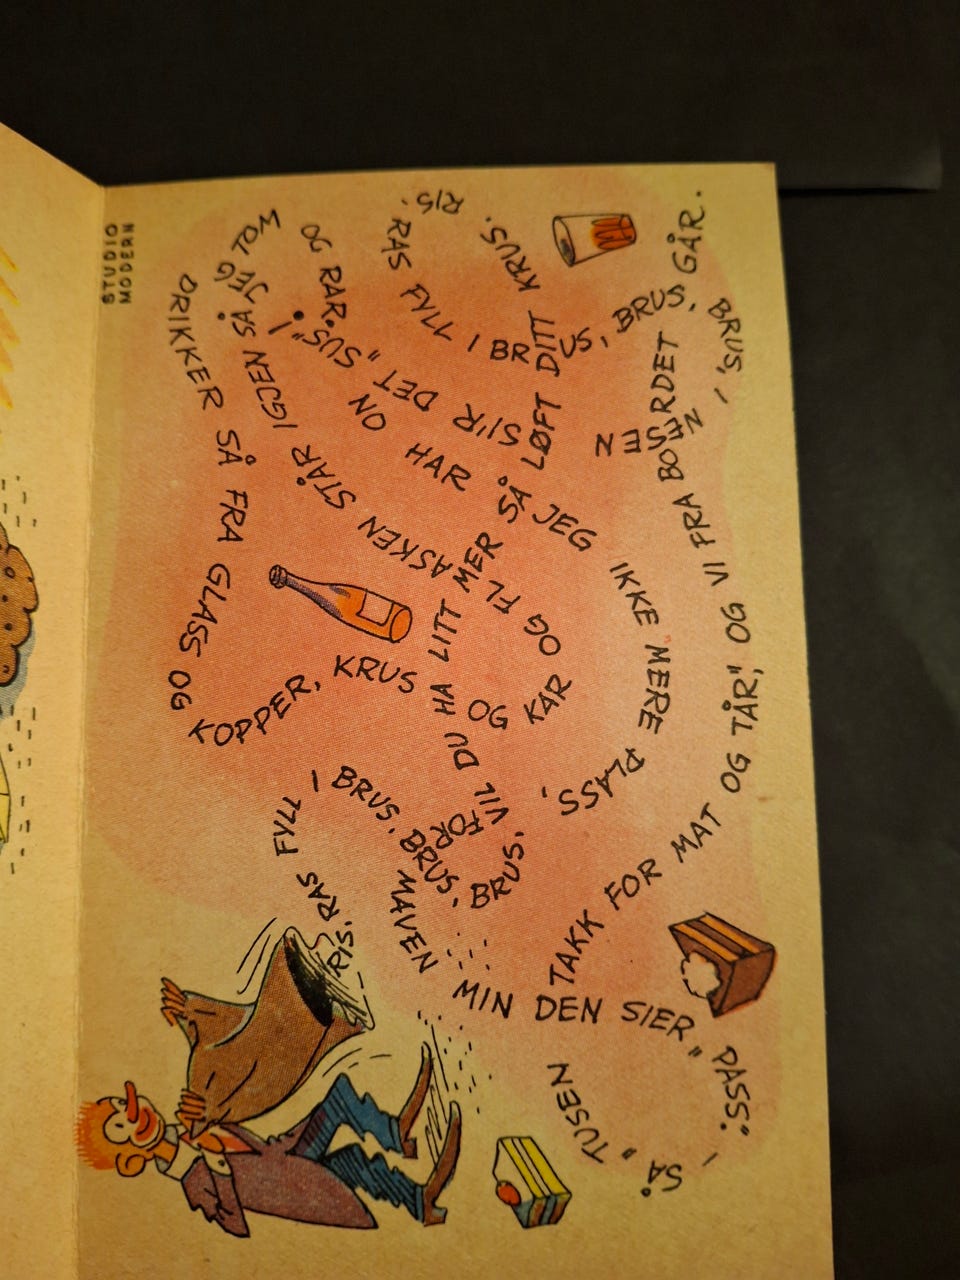 STUDIO
MODERN
DRIKKER SÅ FRA GLASS OG
KOPPER, KRUS OG KAR
OG FLASKEN STÅR IGJEN SÅ JEG TOM
OG RAR.
RIS, RAS FYLL I BRUS, BRUS, BRUS,
VIL DU HA LITT MER SÅ LØFT DITT KRUS.
RIS, RAS FYLL I BRUS, BRUS, BRUS, I
NESEN SI'R DET "SUS"!
NO HAR JEG IKKE MERE PLASS,
FOR MAVEN MIN DEN SIER "PASS".
SÅ "TUSEN TAKK FOR MAT OG TÅR," OG VI FRA BORDET GÅR.